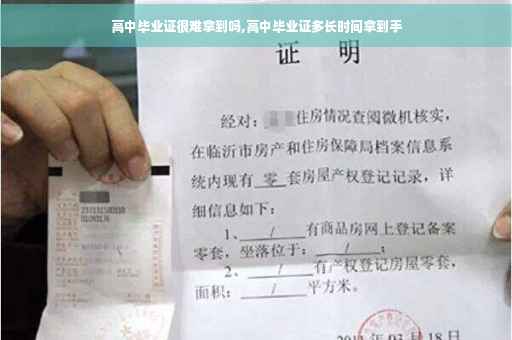 高中毕业证很难拿到吗,高中毕业证多长时间拿到手
证 明
经对: 住房情况查阅微机核实,
在临沂市房产和住房保障局档案信息系
统内现有 零 套房屋产权登记记录,详
细信息如下:
1、 / 有商品房网上登记备案
零套,坐落位于: / ;
2、 / 有产权登记房屋零套,
面积: / 平方米。
03 月 18 日